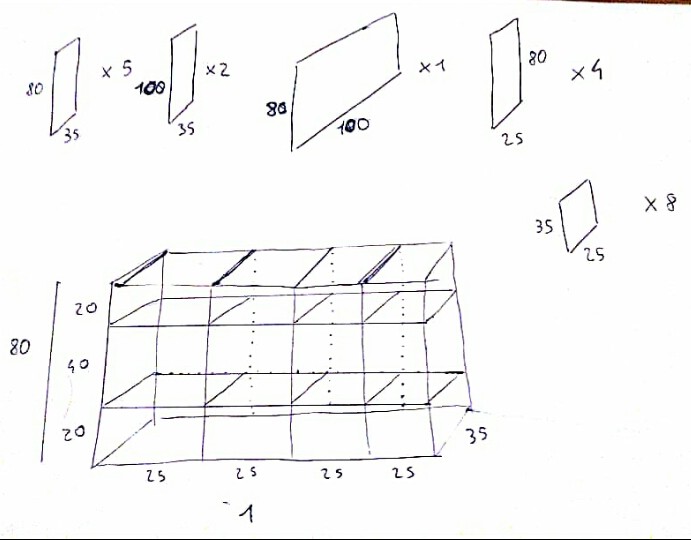 80 35 x 5
100 35 x 2
80 100 x 1
80 25 x 4
35 25 x 8
80
20
40
20
35
25 25 25 25
1